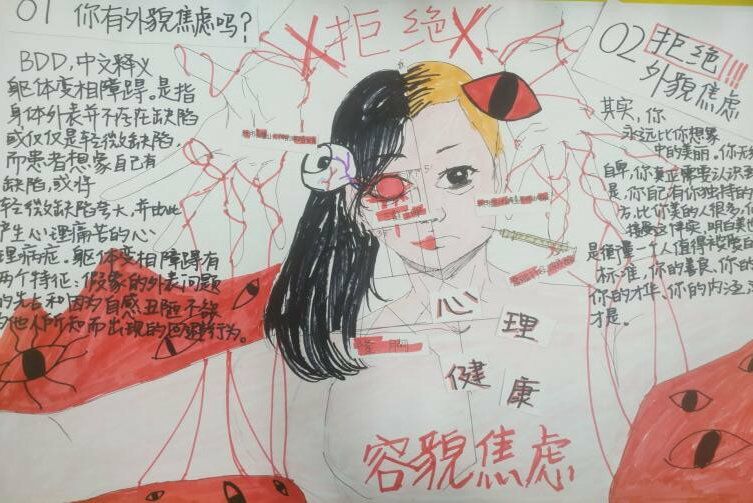 01 你有外貌焦虑吗?
BDD,中文释义
躯体变相障碍。是指
身体外表并不存在缺陷
或仅仅是轻微缺陷,
而患者想象自己有
缺陷,或将
轻微缺陷夸大,并由此
产生心理痛苦的心
理病症。躯体变相障碍有
两个特征:假象的外表问题
的先占和因为自感丑陋不欲
为他人所知而出现的回避行为。
X拒绝X
心理
健康
容貌焦虑
02 拒绝!!!
外貌焦虑
其实,你
永远比你想象
中的美丽。你无
自卑,你真正需要认识
是,你自己有你独特的
方,比你美的人很多,
接受这件事,明白美
是衡量一个人值得被爱
标准,你的善良、你的
你的才华、你的内涵
才是。